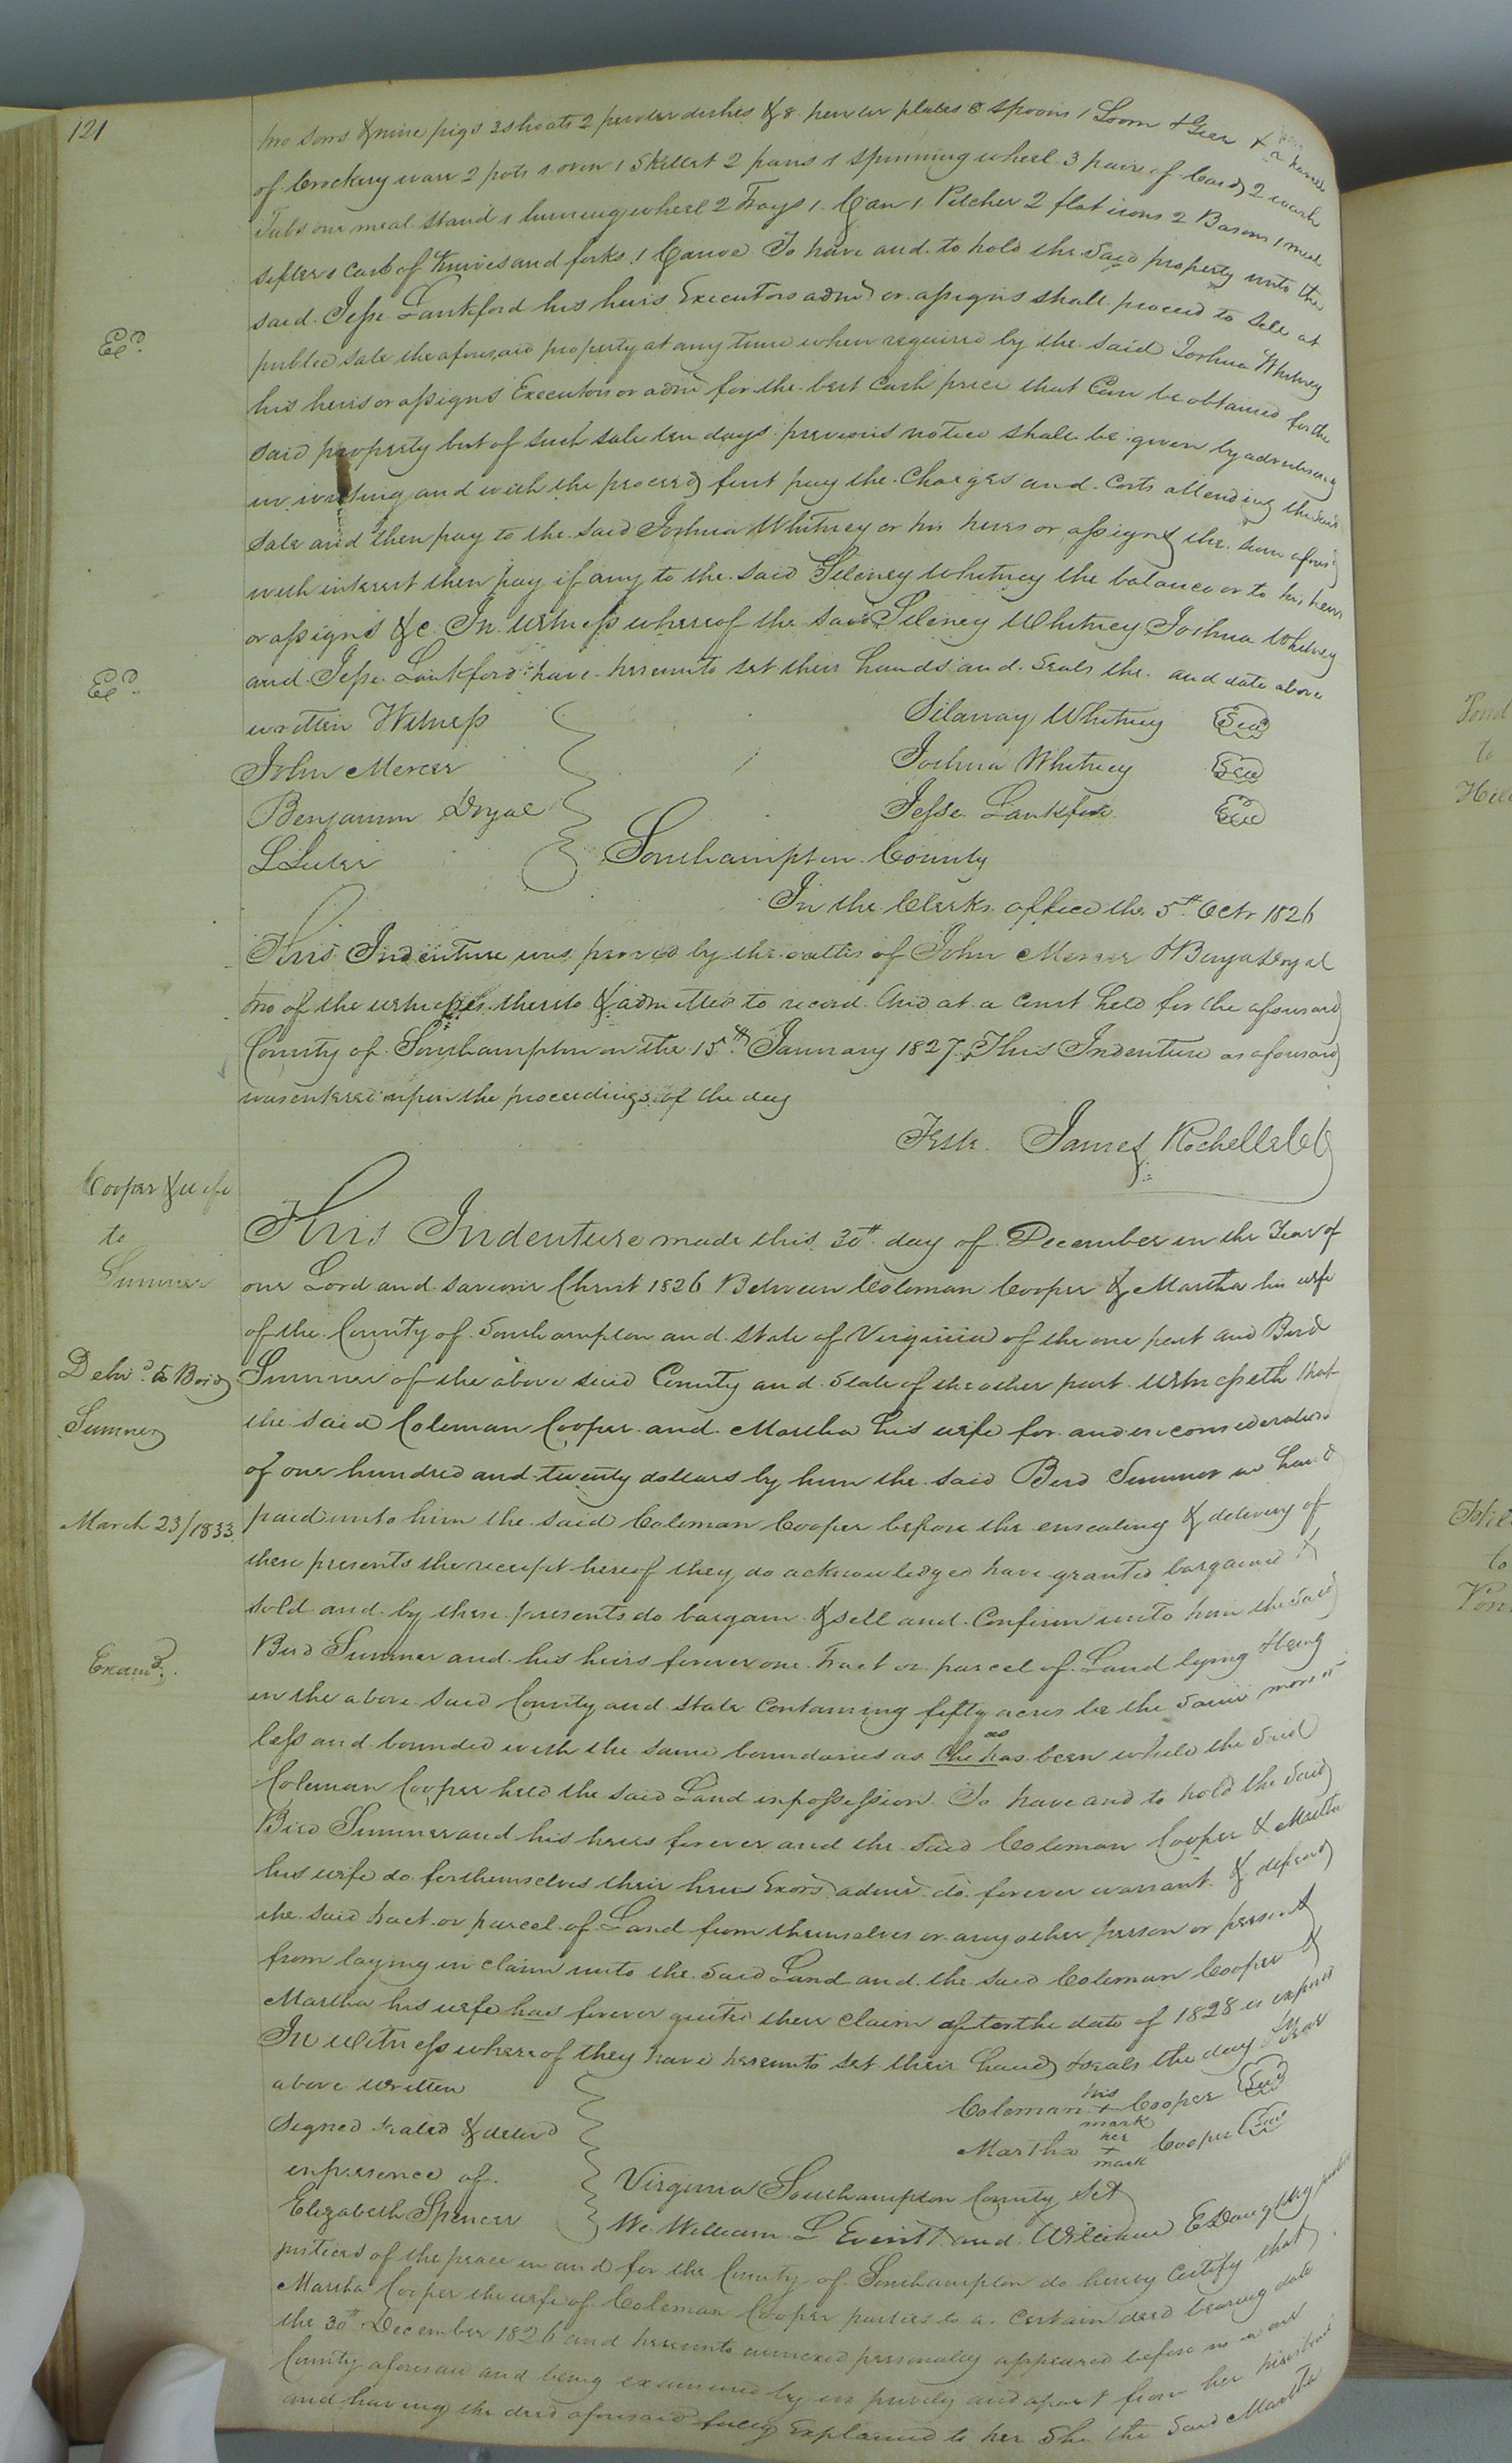 121
two sows & nine pigs 3 shoats 2 pewter dishes & 8 pewter plates 8 spoons 1 Loom & Geer &
of Crockery ware 2 pots 1 oven 1 Skillet 2 pans 1 Spinning wheel 3 pair of Cards 2 wash
Tubs one meal stand 1 wheel 2 Trays 1 Can 1 Pitcher 2 flat irons 2 Basons 1 meal
sifter 1 Case of Knives and forks 1 Canoe To have and to hold the Said property unto the
said Jesse Lankford his heirs Executors admr or assigns shall proceed to Sell at
public sale the aforesaid property at any time when required by the said Joshua Whitney
his heirs or assigns Executors or admr for the best Cash price that Can be obtained for the
Said property but of such sale ten days previous notice shall be given by advertising
in writing and with the proceeds first pay the Charges and Costs attending the said
Sale and then pay to the said Joshua Whitney or his heirs or assigns the sum aforesd
with interest then pay if any to the said Sileney Whitney the balance or to his heirs
or assigns &c In witness whereof the said Sileney Whitney Joshua Whitney
and Jesse Lankford have hereunto set their hands and Seals the and date above
written Witness
Silamay Whitney Seal
John Mercer
Joshua Whitney Seal
Benjamin Doyal
Jesse Lankford Seal
Southampton County
In the Clerks office the 5th Octr 1826
This Indenture was proved by the oaths of John Mercer & Benja Doyal
two of the witnesses thereto & admitted to record And at a Court held for the aforesaid
County of Southampton on the 15th January 1827 This Indenture as aforesaid
was entered upon the proceedings of the day
Teste James Rochelle CC
Cooper & wife
to
Summer
Delivd to Bird
Summer
March 23/1833
Examd
This Indenture made this 30th day of December in the Year of
our Lord and saviour Christ 1826 Between Coleman Cooper & Martha his wife
of the County of Southampton and State of Virginia of the one part and Bird
Summer of the above said County and State of the other part Witnesseth that
the said Coleman Cooper and Martha his wife for and in consideration
of one hundred and twenty dollars by him the said Bird Summer in hand
paid unto him the said Coleman Cooper before the ensealing & delivery of
these presents the receipt hereof they do acknowledged have granted bargained &
sold and by these presents do bargain & sell and Confirm unto him the said
Bird Summer and his heirs forever one Tract or parcel of Land lying &being
in the above said County and State Containing fifty acres be the Same more or
less and bounded with the same boundaries as
as
the has been while the said
Coleman Cooper held the said Land in possession To have and to hold the said
Bird Summer and his heirs forever and the said Coleman Cooper & Martha
his wife do for themselves their heirs Exors admrs do forever warrant & defend
the said tract or parcel of Land from themselves or any other person or persons
from laying in claim unto the said Land and the said Coleman Cooper &
Martha his wife has forever quited their Claim after the date of 1828 is expired
In witness whereof they have hereunto set their hands & seals the day & year
above written
Signed Sealed & deliverd
in presence of
Elizabeth Spencer
Coleman his + mark Cooper Seal
Martha her + mark Cooper Seal
Virginia Southampton County Sct
We William and William
justices of the peace in and for the County of Southampton do hereby Certify that
Martha Cooper the wife of Coleman Cooper parties to a Certain deed bearing date
the 30th December 1826 and hereunto annexed personally appeared before us in our
County aforesaid and being examined by us privily and apart from her husband
and having the deed aforesaid fully Explained to her She the Said Martha